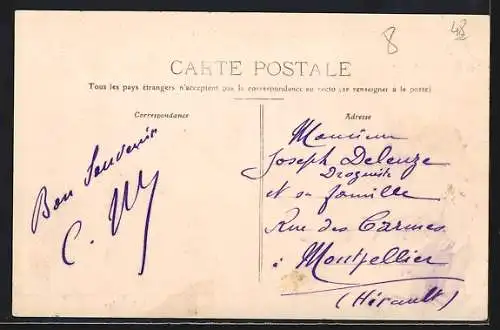 8
48
CARTE POSTALE
Tous les pays étrangers n'acceptent pas la correspondance au recto (se renseigner à la poste)
Correspondance
Adresse
Bon Souvenir
C.
Monsieur
Joseph Deleuze
Droguiste
et sa famille
Rue des Carmes
Montpellier
(Hérault)